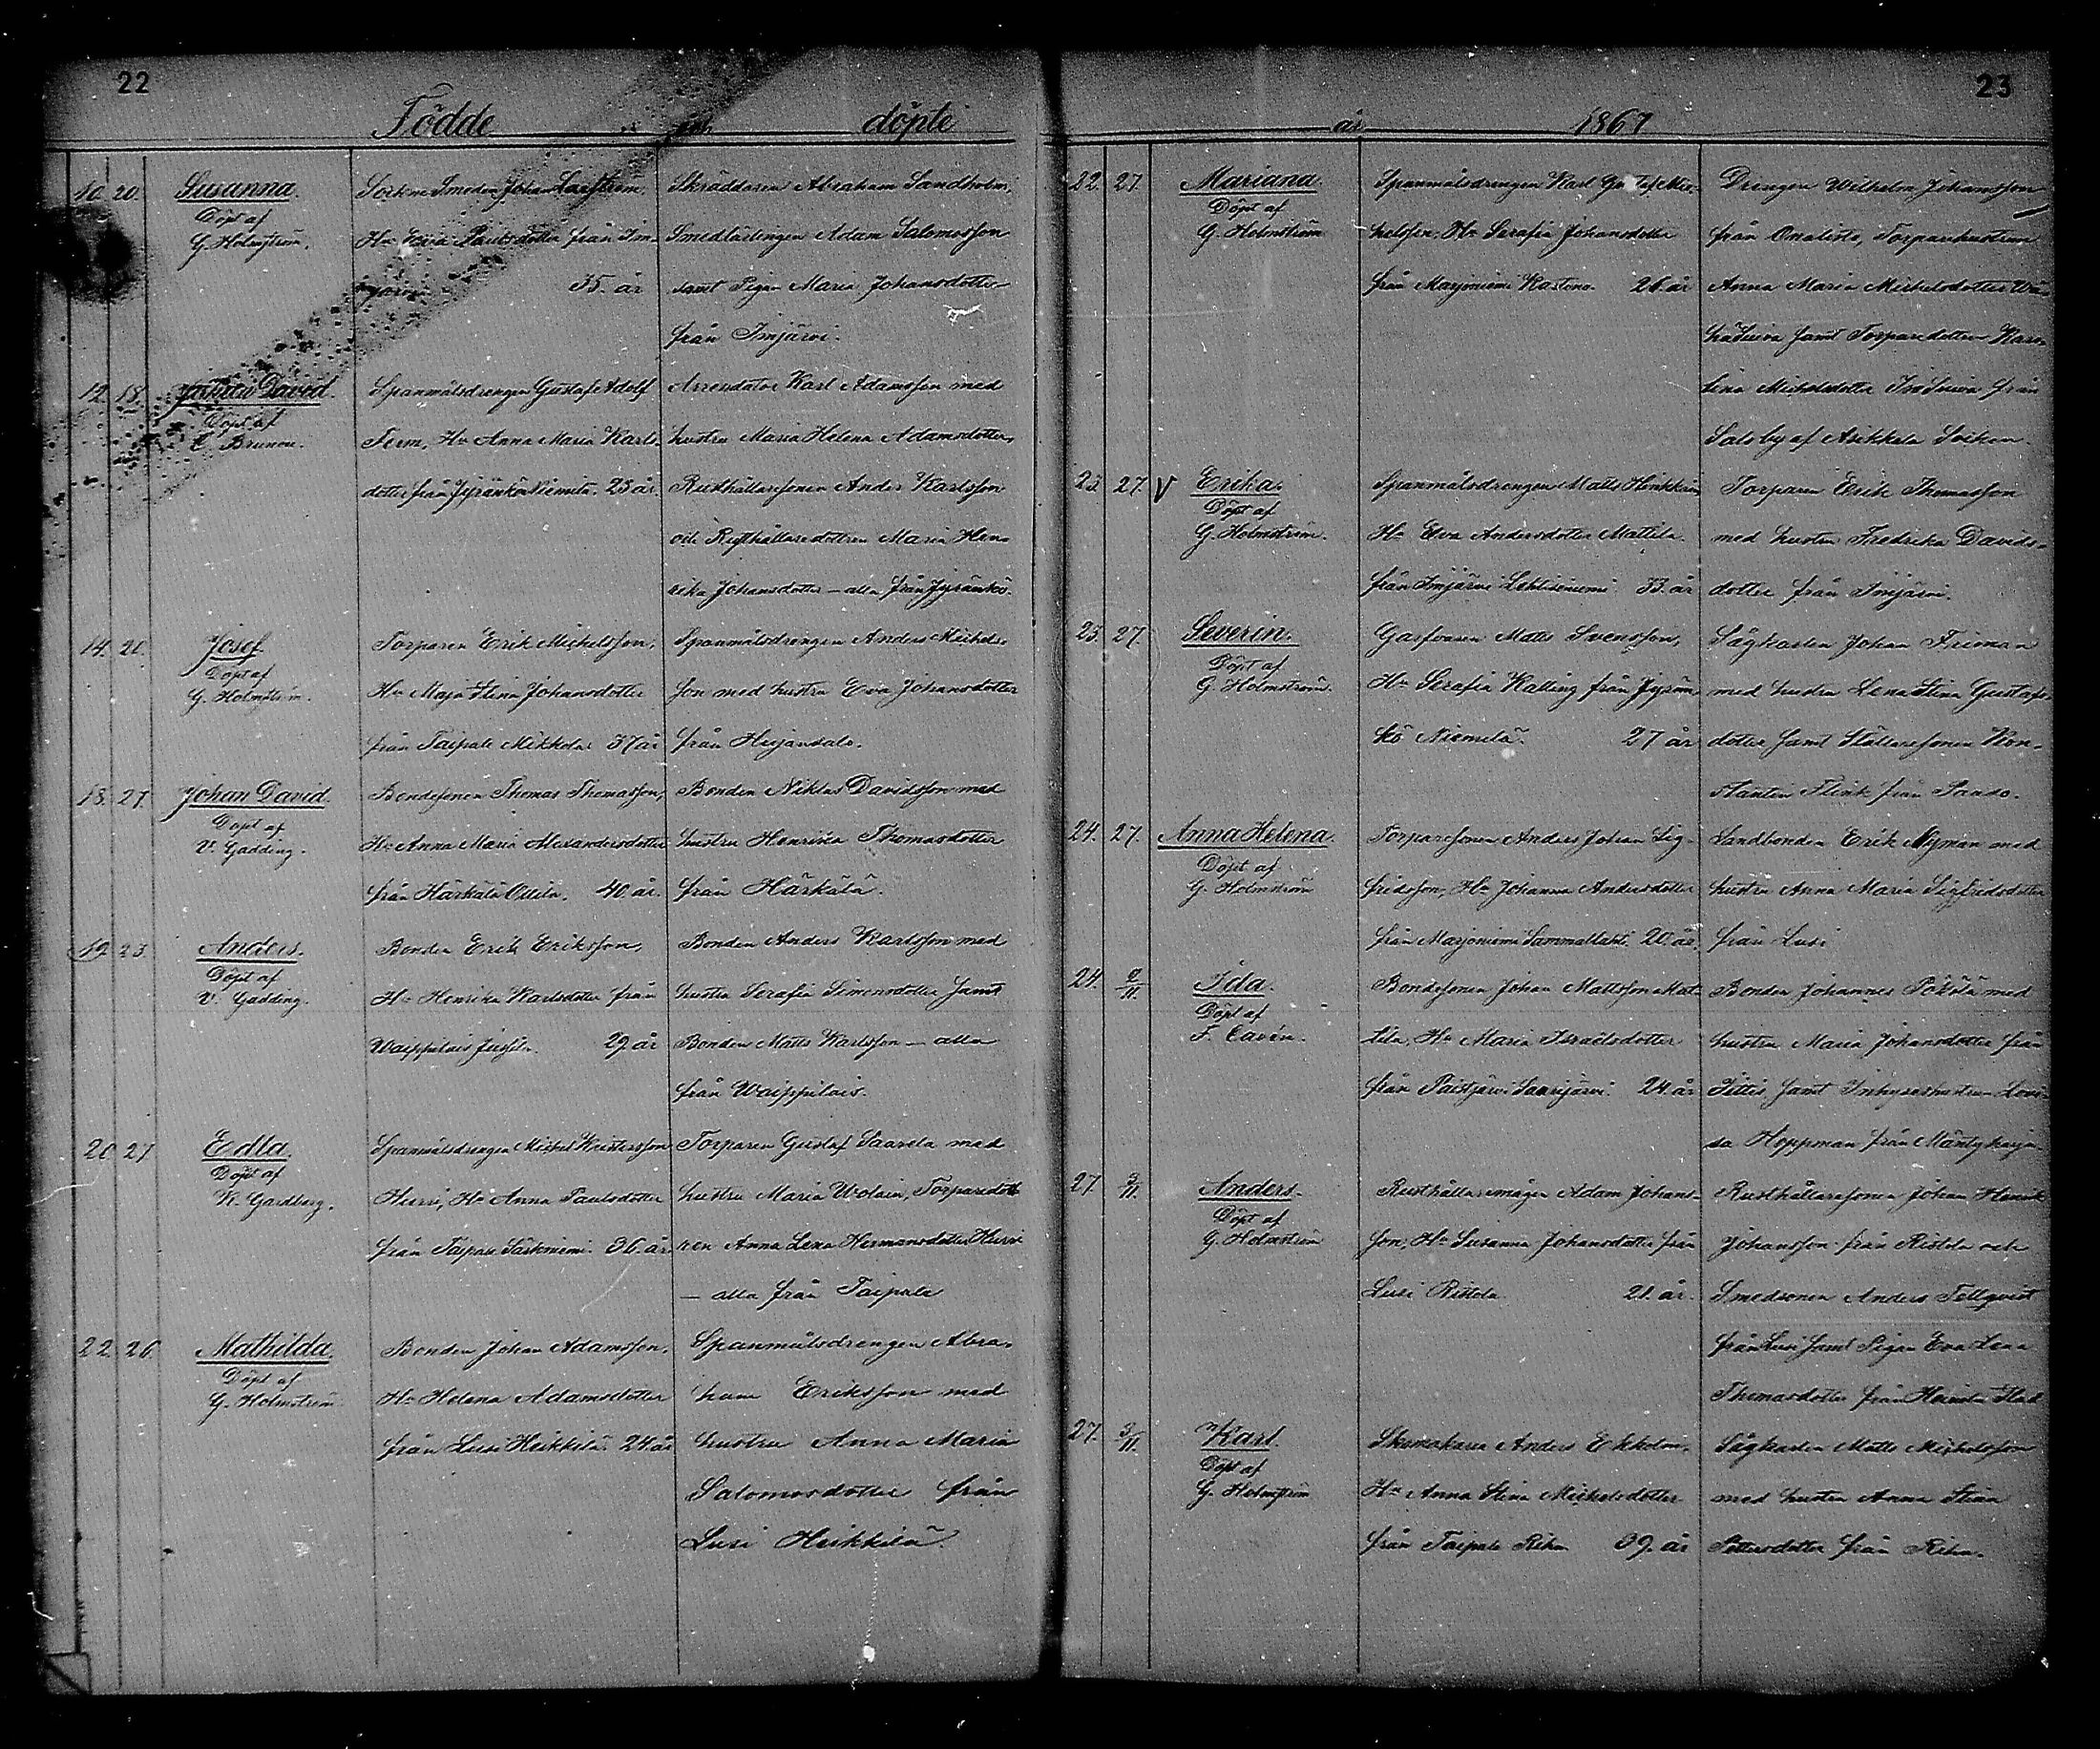 22
Födde och döpte
10. 20. Susanna.
Döpt af
G. Holmström.
Sockne Smeden Johan Lagström,
Hu Eva Paulsdotter från Im-
järvi 35. år
Skräddaren Abraham Sandholm,
Smedlärlingen Adam Salomosson
samt Pigan Maria Johansdotter
från Imjärvi.
12. 18. David.
Döpt af
C. Brunou.
Spanmålsdrengen Gustaf Adolf
Term, Hu Anna Maria Karls-
dotter från Jyränkö Niemilä. 25 år.
Arrendator Karl Adamsson med
hustru Maria Helena Adamsdotter,
Rusthållaresonen Anders Karlsson
och Rusthållaredottren Maria Hen-
rika Johansdotter – alla från Jyränkö.
14. 20. Josef
Döpt af
G. Holmström.
Torparen Erik Michelsson,
Hu Maja Stina Johansdotter
från Taipale Mikkola 37 år
Spanmålsdrengen Anders Michels-
son med hustru Eva Johansdotter
från Heijansalo.
18. 27. Johan David.
Döpt af
V. Gadding.
Bondesonen Thomas Thomasson,
Hu Anna Maria Alexandersdotter
från Härkälä Ollila. 40. år.
Bonden Niklas Davidsson med
hustru Henrika Thomasdotter
från Härkälä.
19. 23. Anders.
Döpt af
V. Gadding.
Bonden Erik Eriksson,
Hu Henrika Karlsdotter från
Waippilais Jussila. 29. år
Bonden Anders Karlsson med
hustru Serafia Simonsdotter samt
Bonden Matts Karlsson – alla
från Waippilais.
20. 27. Edla.
Döpt af
K. Gardberg.
Spanmålsdrengen Michel Kristersson
Hurri, Hu Anna Paulsdotter
från Taipale Särkniemi. 36. år.
Torparen Gustaf Saarela med
hustru Maria Wolain, Torparedott-
ren Anna Lena Hermansdotter Hurri
– alla från Taipale
22. 26. Mathilda
Döpt af
G. Holmström
Bonden Johan Adamsson,
Hu Helena Adamsdotter
från Lusi Heikkilä. 24. år
Spanmålsdrengen Abra-
ham Eriksson med
hustru Anna Maria
Salomosdotter från
Lusi Heikkilä.
23
år 1867
22. 27. Mariana.
Döpt af
G. Holmström
Spanmålsdrengen Karl Gustaf Mic-
helsson, Hu Serafia Johansdotter
från Marjoniemi Kastino. 26. år
Drengen Wilhelm Johansson
från Onalisto, Torparehustrun
Anna Maria Michelsdotter
samt Torparedottren Karo-
lina Michelsdotter från
Salo by af Asikkala Socken.
23. 27. V Erika.
Döpt af
G. Holmström.
Spanmålsdrengen Matts Heikkinen,
Hu Eva Andersdotter Mattila
från Imjärvi Lehtisniemi. 33. år
Torparen Erik Thomasson
med hustru Fredrika Davids-
dotter från Imjärvi.
23. 27. Severin.
Döpt af
G. Holmström.
Garfvaren Matts Svensson,
Hu Serafia Kalling från Jyrän-
kö Niemilä. 27 år
Sågkarlen Johan Friman
med hustru Lena Stina Gustafs-
dotter samt Stattaresonen Kon-
stantin Flink från
24. 27. Anna Helena.
Döpt af
G. Holmström
Torparesonen Anders Johan Sig-
fridsson, Hu Johanna Andersdotter
från Marjoniemi Sammallahti. 20. år.
Landbonden Erik Nyman med
hustru Anna Maria Sigfridsdotter
från Lusi
24. 2/11. Ida.
Döpt af
F. Cavén.
Bondesonen Johan Mattsson Mat-
tila, Hu Maria Israelsdotter
från Paistjärvi Saarijärvi. 24. år
Bonden Johannes Pökölä med
hustru Maria Johansdotter från
Jittis, samt Inhyseshustrun Lovi-
sa Hoppman från Mäntyharju
27. 3/11. Anders.
Döpt af
G. Holmström
Rusthållaremågen Adam Johans-
son, Hu Susanna Johansdotter från
Lusi Ristola 21. år.
Rusthållaresonen Johan Henrik
Johansson från Ristola och
Smedsonen Anders Tellqvist
från Lusi samt Pigan Eva Lena
Thomasdotter från Heinola Stad
27. 3/11. Karl.
Döpt af
G. Holmström
Skomakaren Anders Ekholm,
Hu Anna Stina Michelsdotter
från Taipale Riha 39. år
Sågkarlen Matts Michelsson
med hustru Anna Stina
Pettersdotter från Riha.